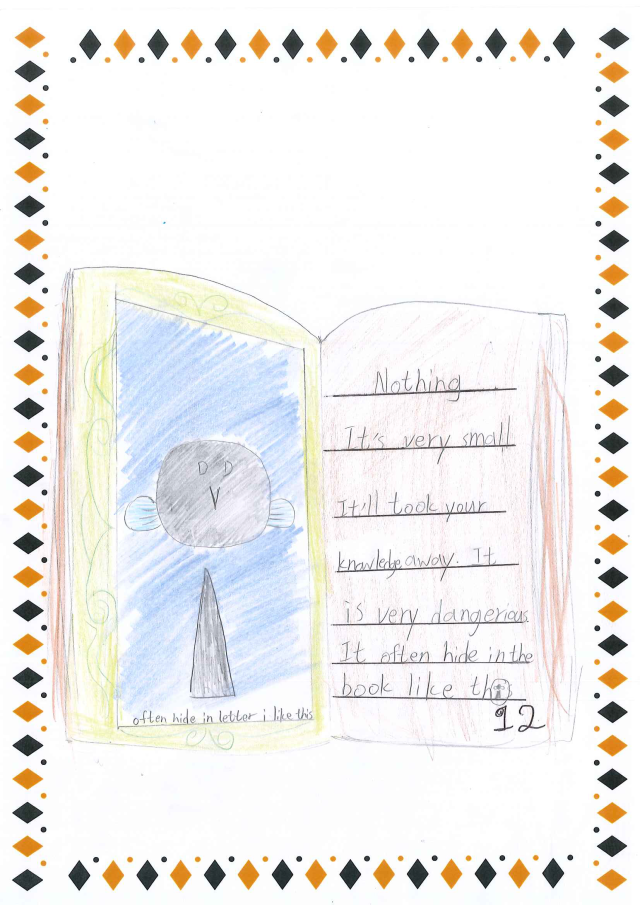 often hide in letter i like this
Nothing
It's very small
It'll took your
knowledge away. It
is very dangerious.
It often hide in the
book like th
12